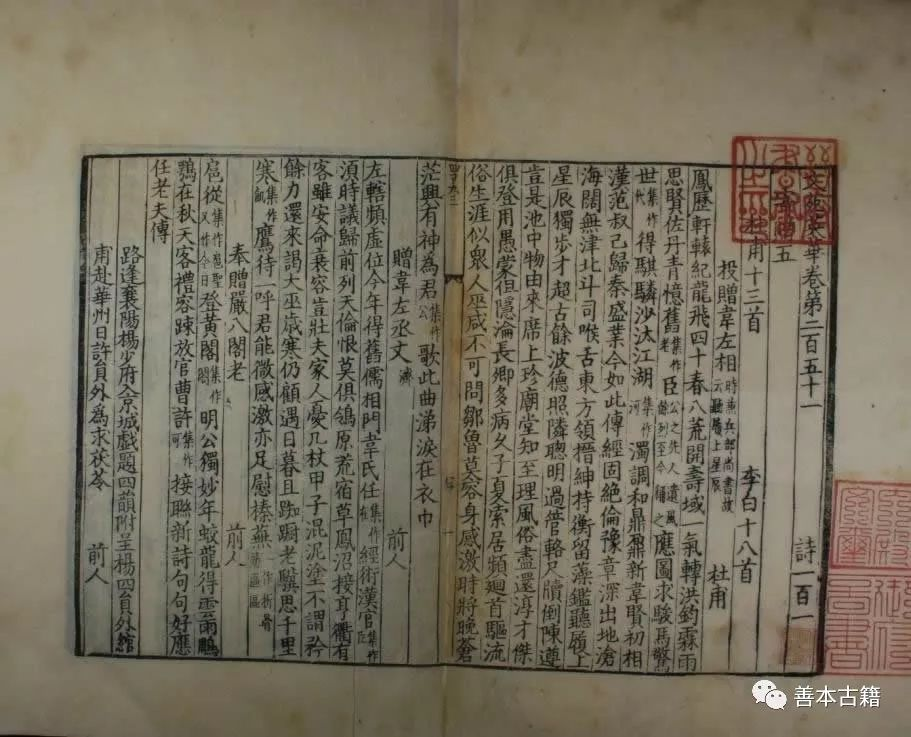 文苑英華卷第二百五十一　詩一百一
五
杜甫十三首　李白十八首
投贈韋左相時兼兵部尚書故云聽履上星辰　杜甫
鳳歷軒轅紀龍飛四十春八荒開壽域一氣轉洪鈞霖雨
思賢佐丹青憶舊集作老臣公之先人遺風餘烈至今稱之應圖求駿馬驚
世集作代得騏驎沙汰江湖集作河濁調和鼎鼐新韋賢初相
漢范叔已歸秦盛業今如此傳經固絶倫豫章深出地滄
海闊無津北斗司喉舌東方領搢紳持衡留藻鑑聽履上
星辰獨步才超古餘波德照隣聰明過管輅尺牘倒陳遵
豈是池中物由來席上珍廟堂知至理風俗盡還淳才傑
俱登用愚蒙但隱淪長卿多病久子夏索居頻廻首驅流
俗生涯似衆人巫咸不可問鄒魯莫容身感激時將晚蒼
茫興有神為君集作公歌此曲涕淚在衣巾
贈韋左丞文濟　前人
左轄頻虛位今年得舊儒相門韋氏任集作在經術漢官集作臣
須時議歸前列天倫恨莫俱鴒原荒宿草鳳沼接亨衢有
客雖安命衰容豈壯夫家人憂几杖甲子混泥塗不謂矜
餘力還來謁大巫歲寒仍顧遇日暮且踟蹰老驥思千里
寒集作飢鷹待一呼君能微感激亦足慰榛蕪
奉贈嚴八閣老　前人
扈從登黃閣集作閤明公獨妙年蛟龍得雲雨鵰
鶚在秋天客禮容踈放官曹許集作可接聯新詩句句好應
任老夫傳
路逢襄陽楊少府入京城戲題四韻附呈楊四員外綰
甫赴華州日許員外為求茯苓　前人
四百九三
善本古籍